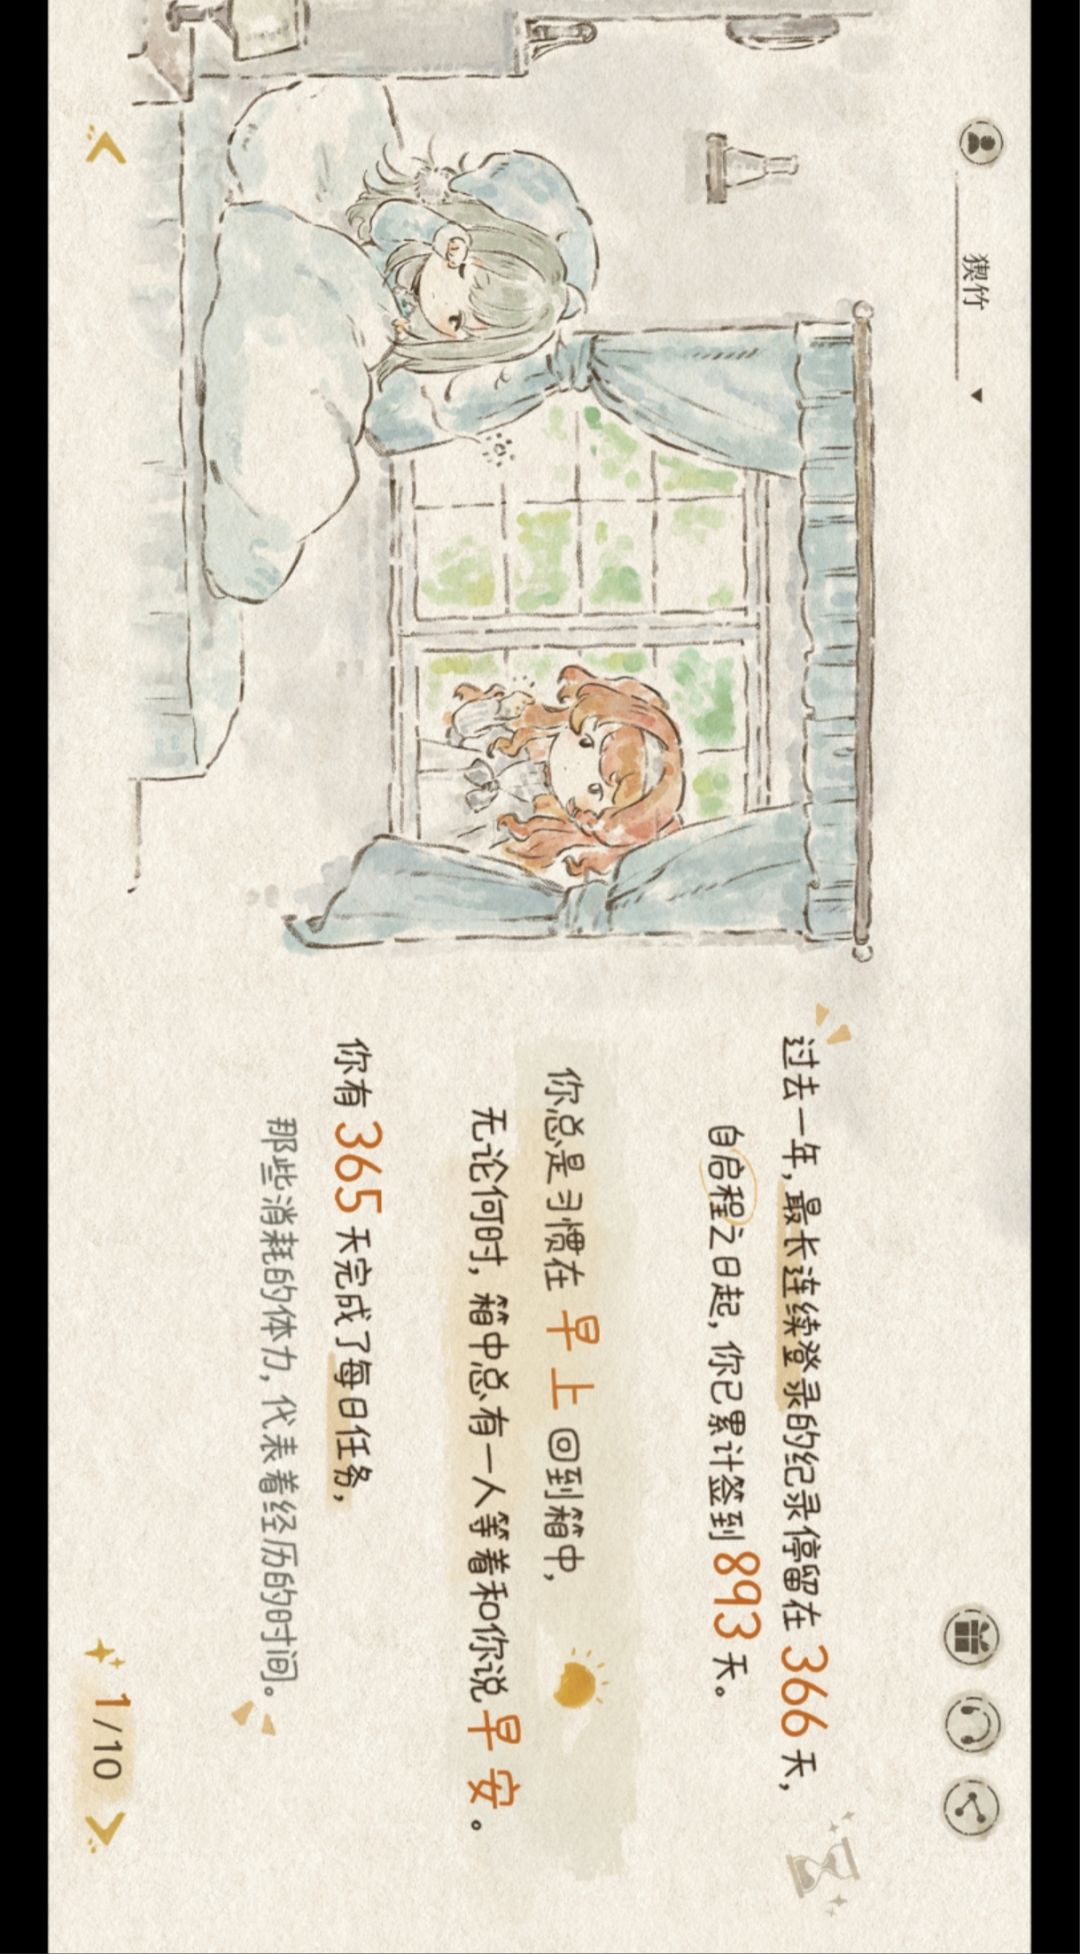 猰竹
过去一年,最长连续登录的纪录停留在 366 天,
自启程之日起,你已累计签到 893 天。
你总是习惯在 早上 回到箱中,
无论何时,箱中总有一人等着和你说 早安 。
你有 365 天完成了每日任务,
那些消耗的体力,代表着经历的时间。
1/10